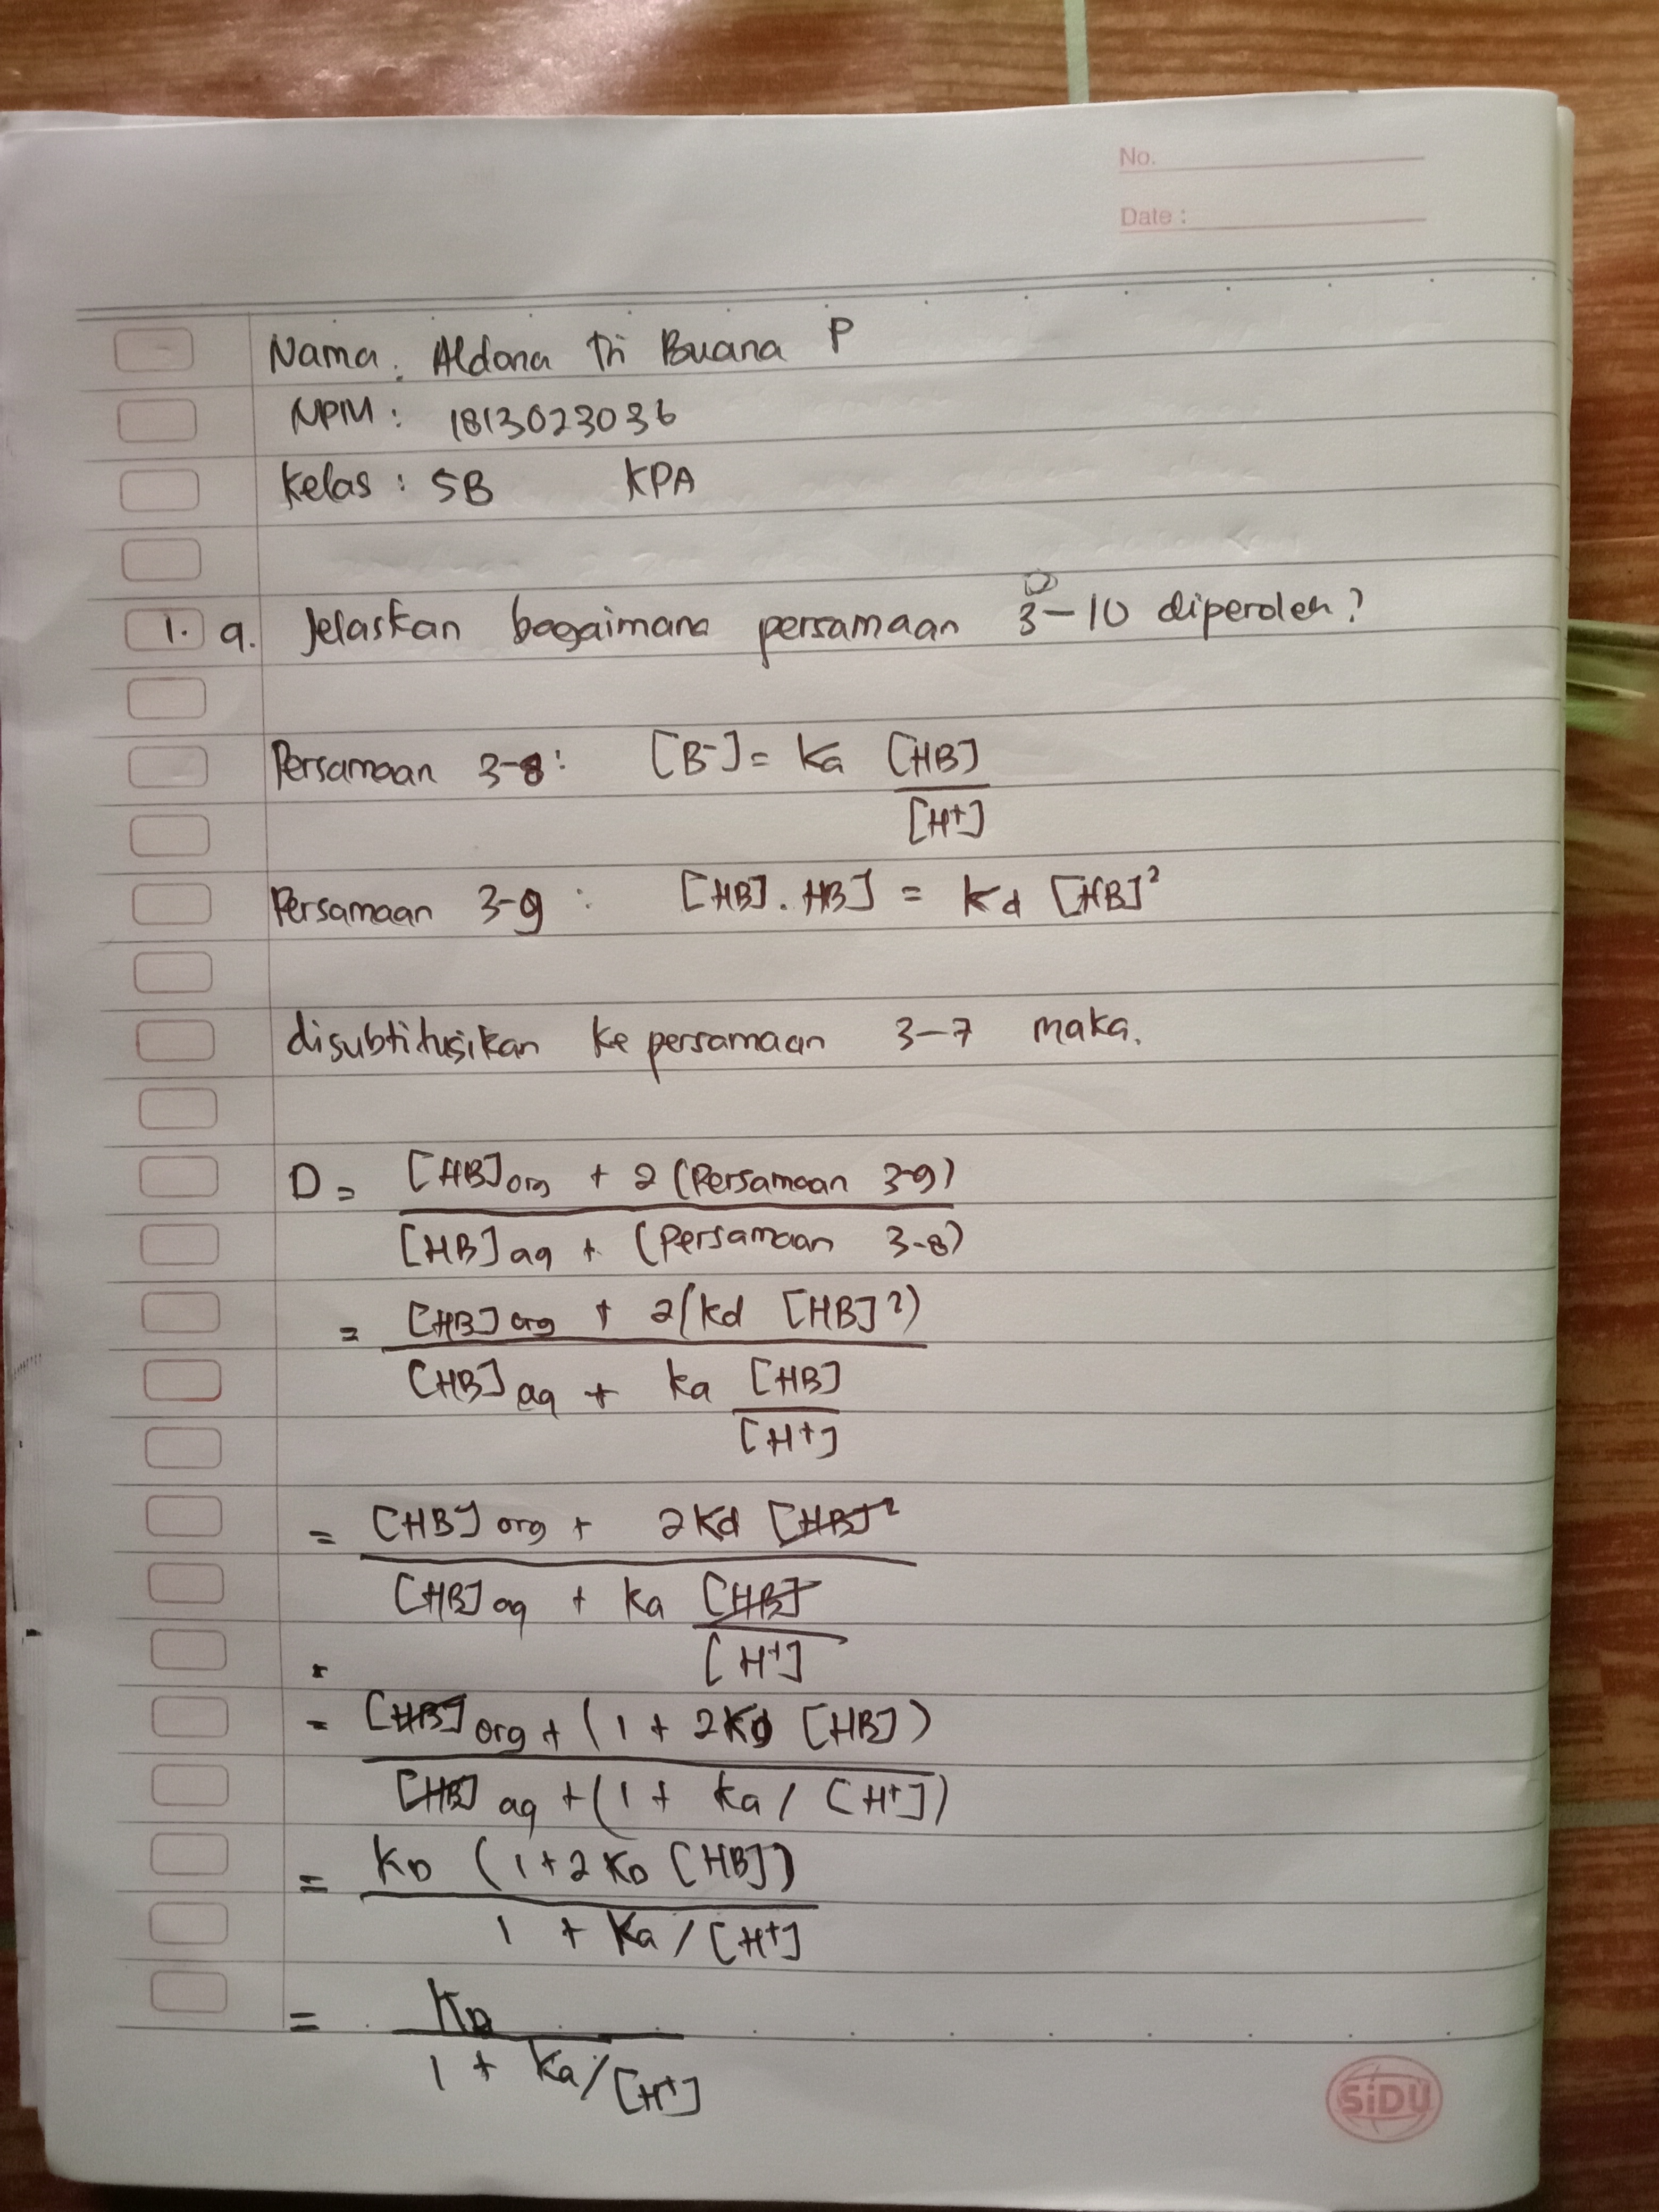 No.
Date :
Nama : Aldona Tri Buana P
NPM : 1813023036
Kelas : 5B KPA
1. a. Jelaskan bagaimana persamaan 3-10 diperoleh?
Persamaan 3-8: [B⁻] = Ka [HB] / [H⁺]
Persamaan 3-9 : [HB] . HB] = Kd [HB]²
disubtitusikan ke persamaan 3-7 maka.
D = [HB] org + 2 (Persamaan 3-9) / [HB] aq + (Persamaan 3-8)
= [HB] org + 2(Kd [HB]²) / [HB] aq + Ka [HB] / [H⁺]
= [HB] org + 2Kd [HB]² / [HB] aq + Ka [HB] / [H⁺]
= [HB] org + (1 + 2KD [HB]) / [HB] aq + (1 + Ka / [H⁺])
= KD (1 + 2 KD [HB]) / 1 + Ka / [H⁺]
= KD / 1 + Ka / [H⁺]
SiDU